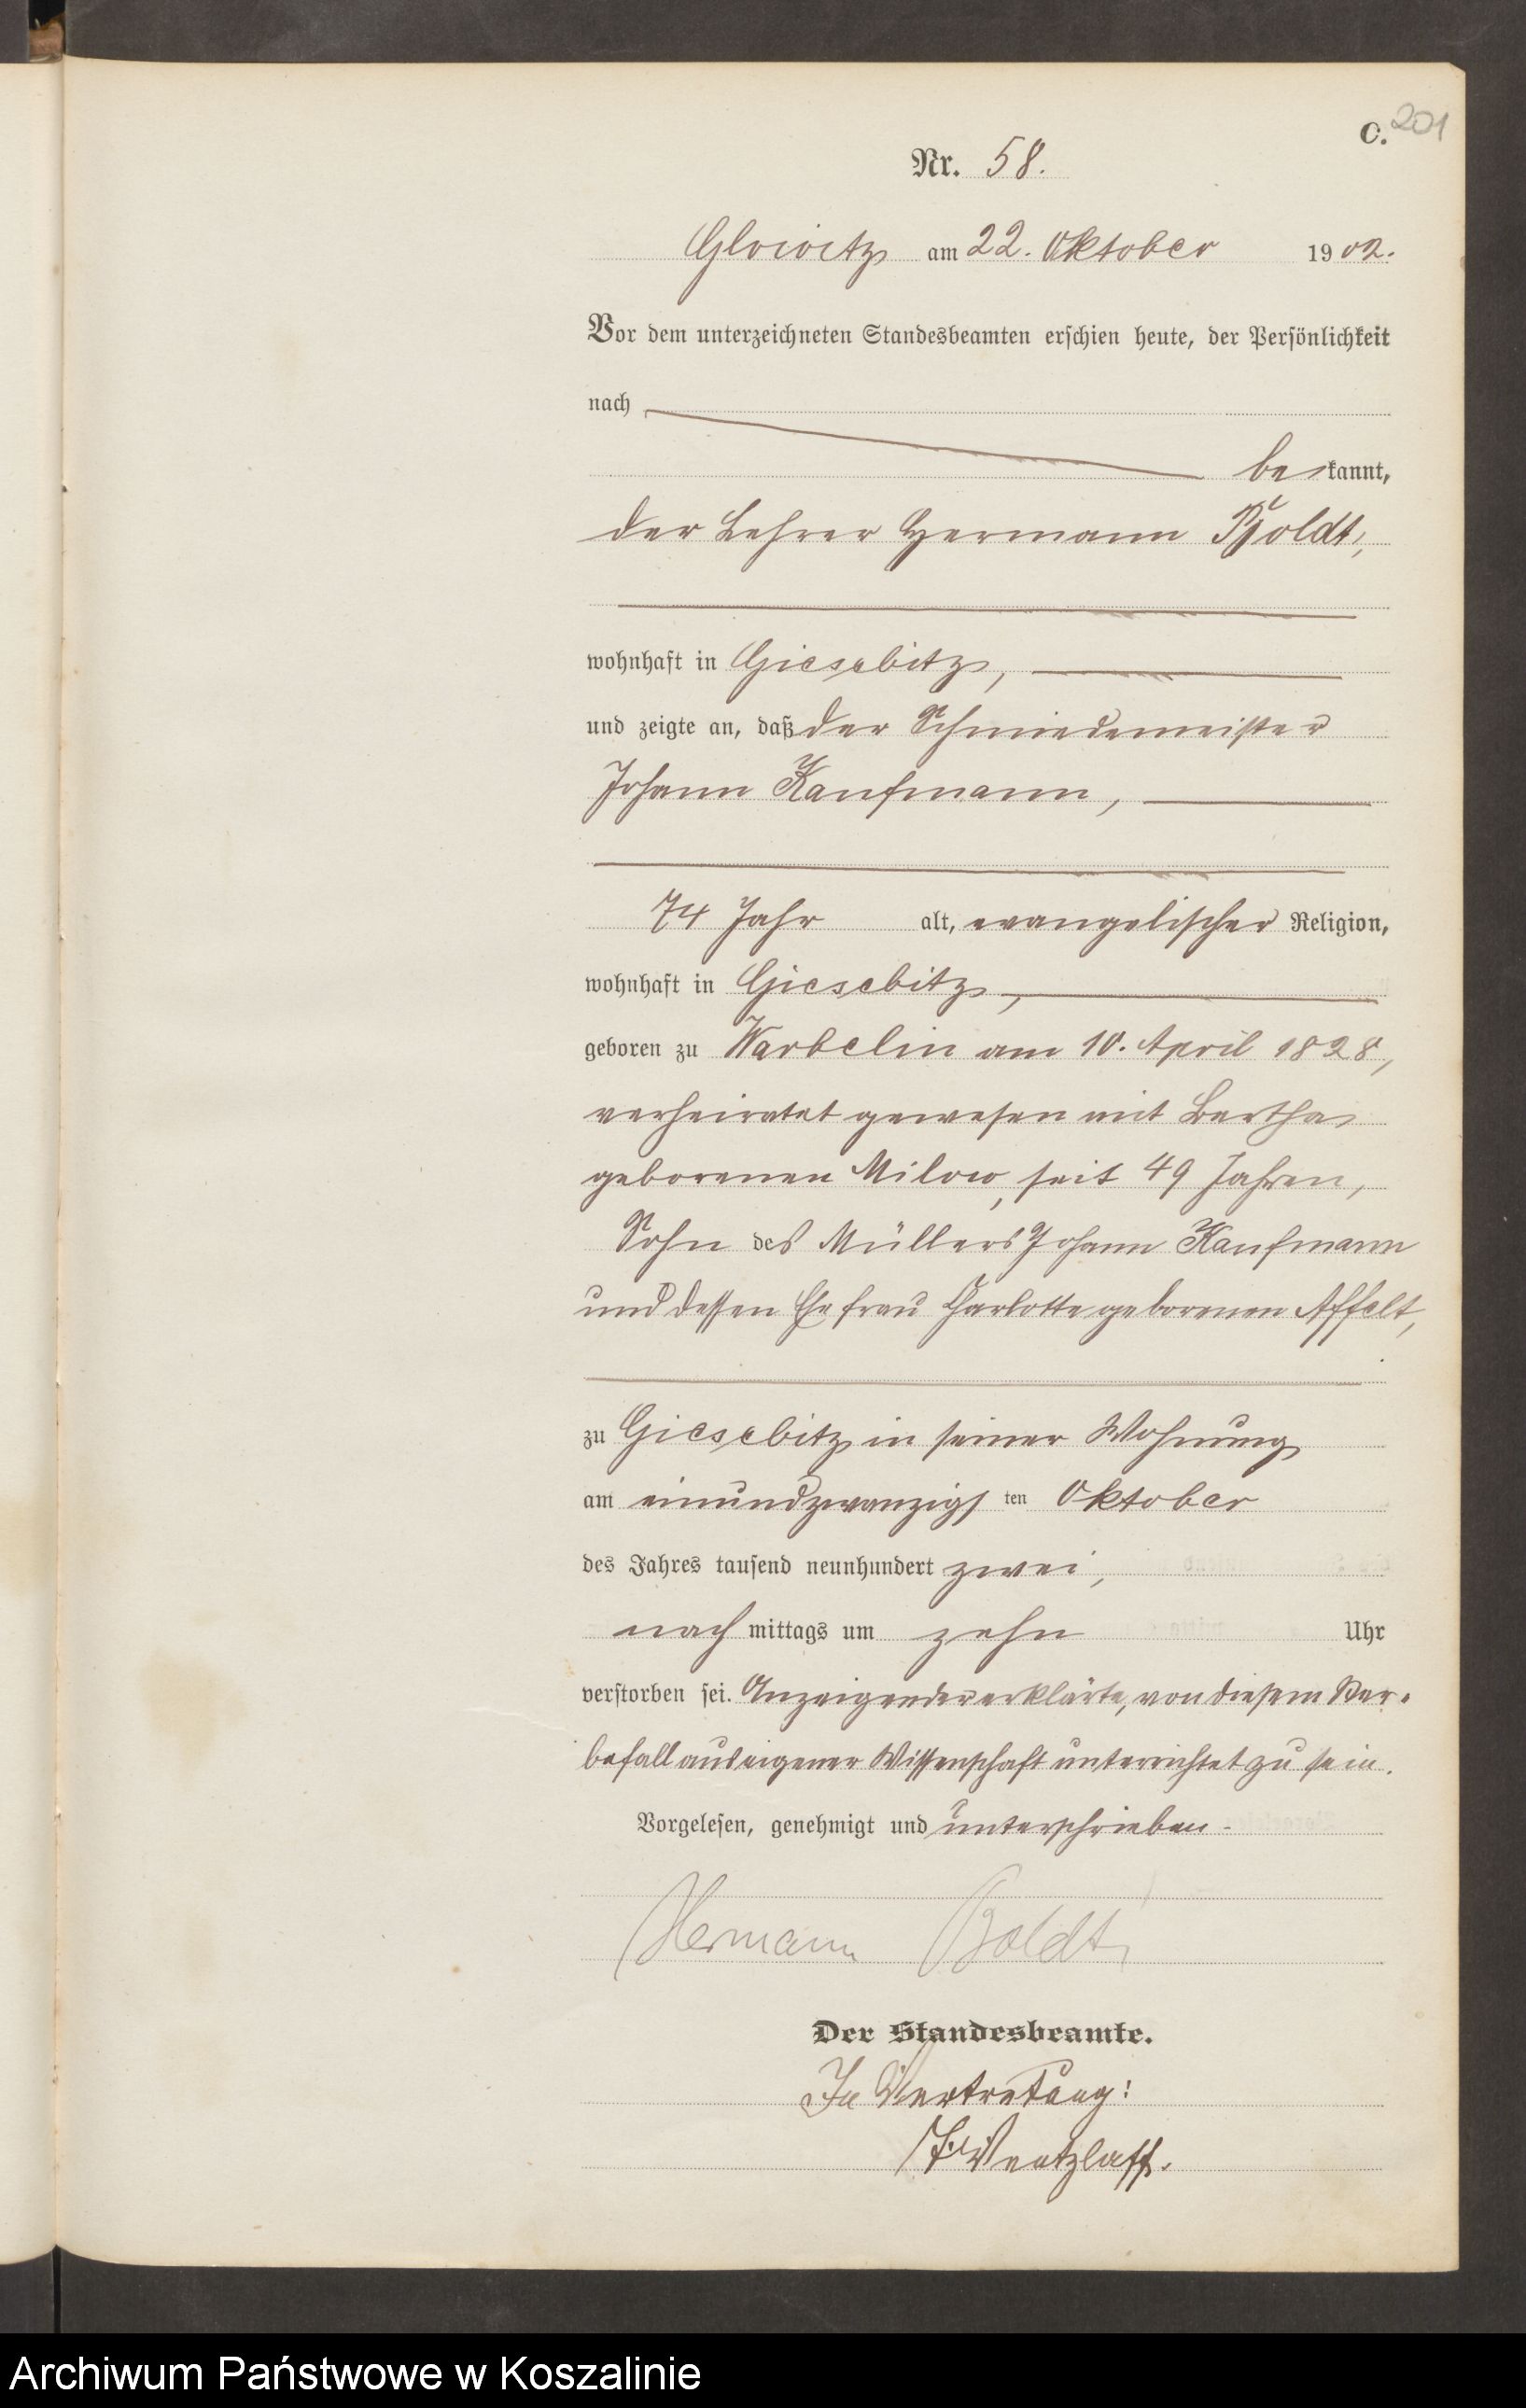 C. 201
Nr. 58.
Glowitz am 22. Oktober 1902.
Vor dem unterzeichneten Standesbeamten erschien heute, der Persönlichkeit
nach
bekannt,
der Lehrer Hermann Boldt,
wohnhaft in Giesebitz,
und zeigte an, daß der Schmiedemeister
Johann Kaufmann,
74 Jahr alt, evangelischer Religion,
wohnhaft in Giesebitz,
geboren zu Warbelin am 10. April 1828,
verheiratet gewesen mit Bertha
geborenen Milow, seit 49 Jahren,
Sohn des Müllers Johann Kaufmann
und dessen Ehefrau Charlotte geborenen Affelt,
zu Giesebitz in seiner Wohnung
am einundzwanzigsten Oktober
des Jahres tausend neunhundert zwei,
nachmittags um zehn Uhr
verstorben sei. Anzeigender erklärte, von diesem Ster-
befall aus eigener Wissenschaft unterrichtet zu sein.
Vorgelesen, genehmigt und unterschrieben.
Hermann Boldt
Der Standesbeamte.
In Vertretung:
Wentzlaff.
Archiwum Państwowe w Koszalinie